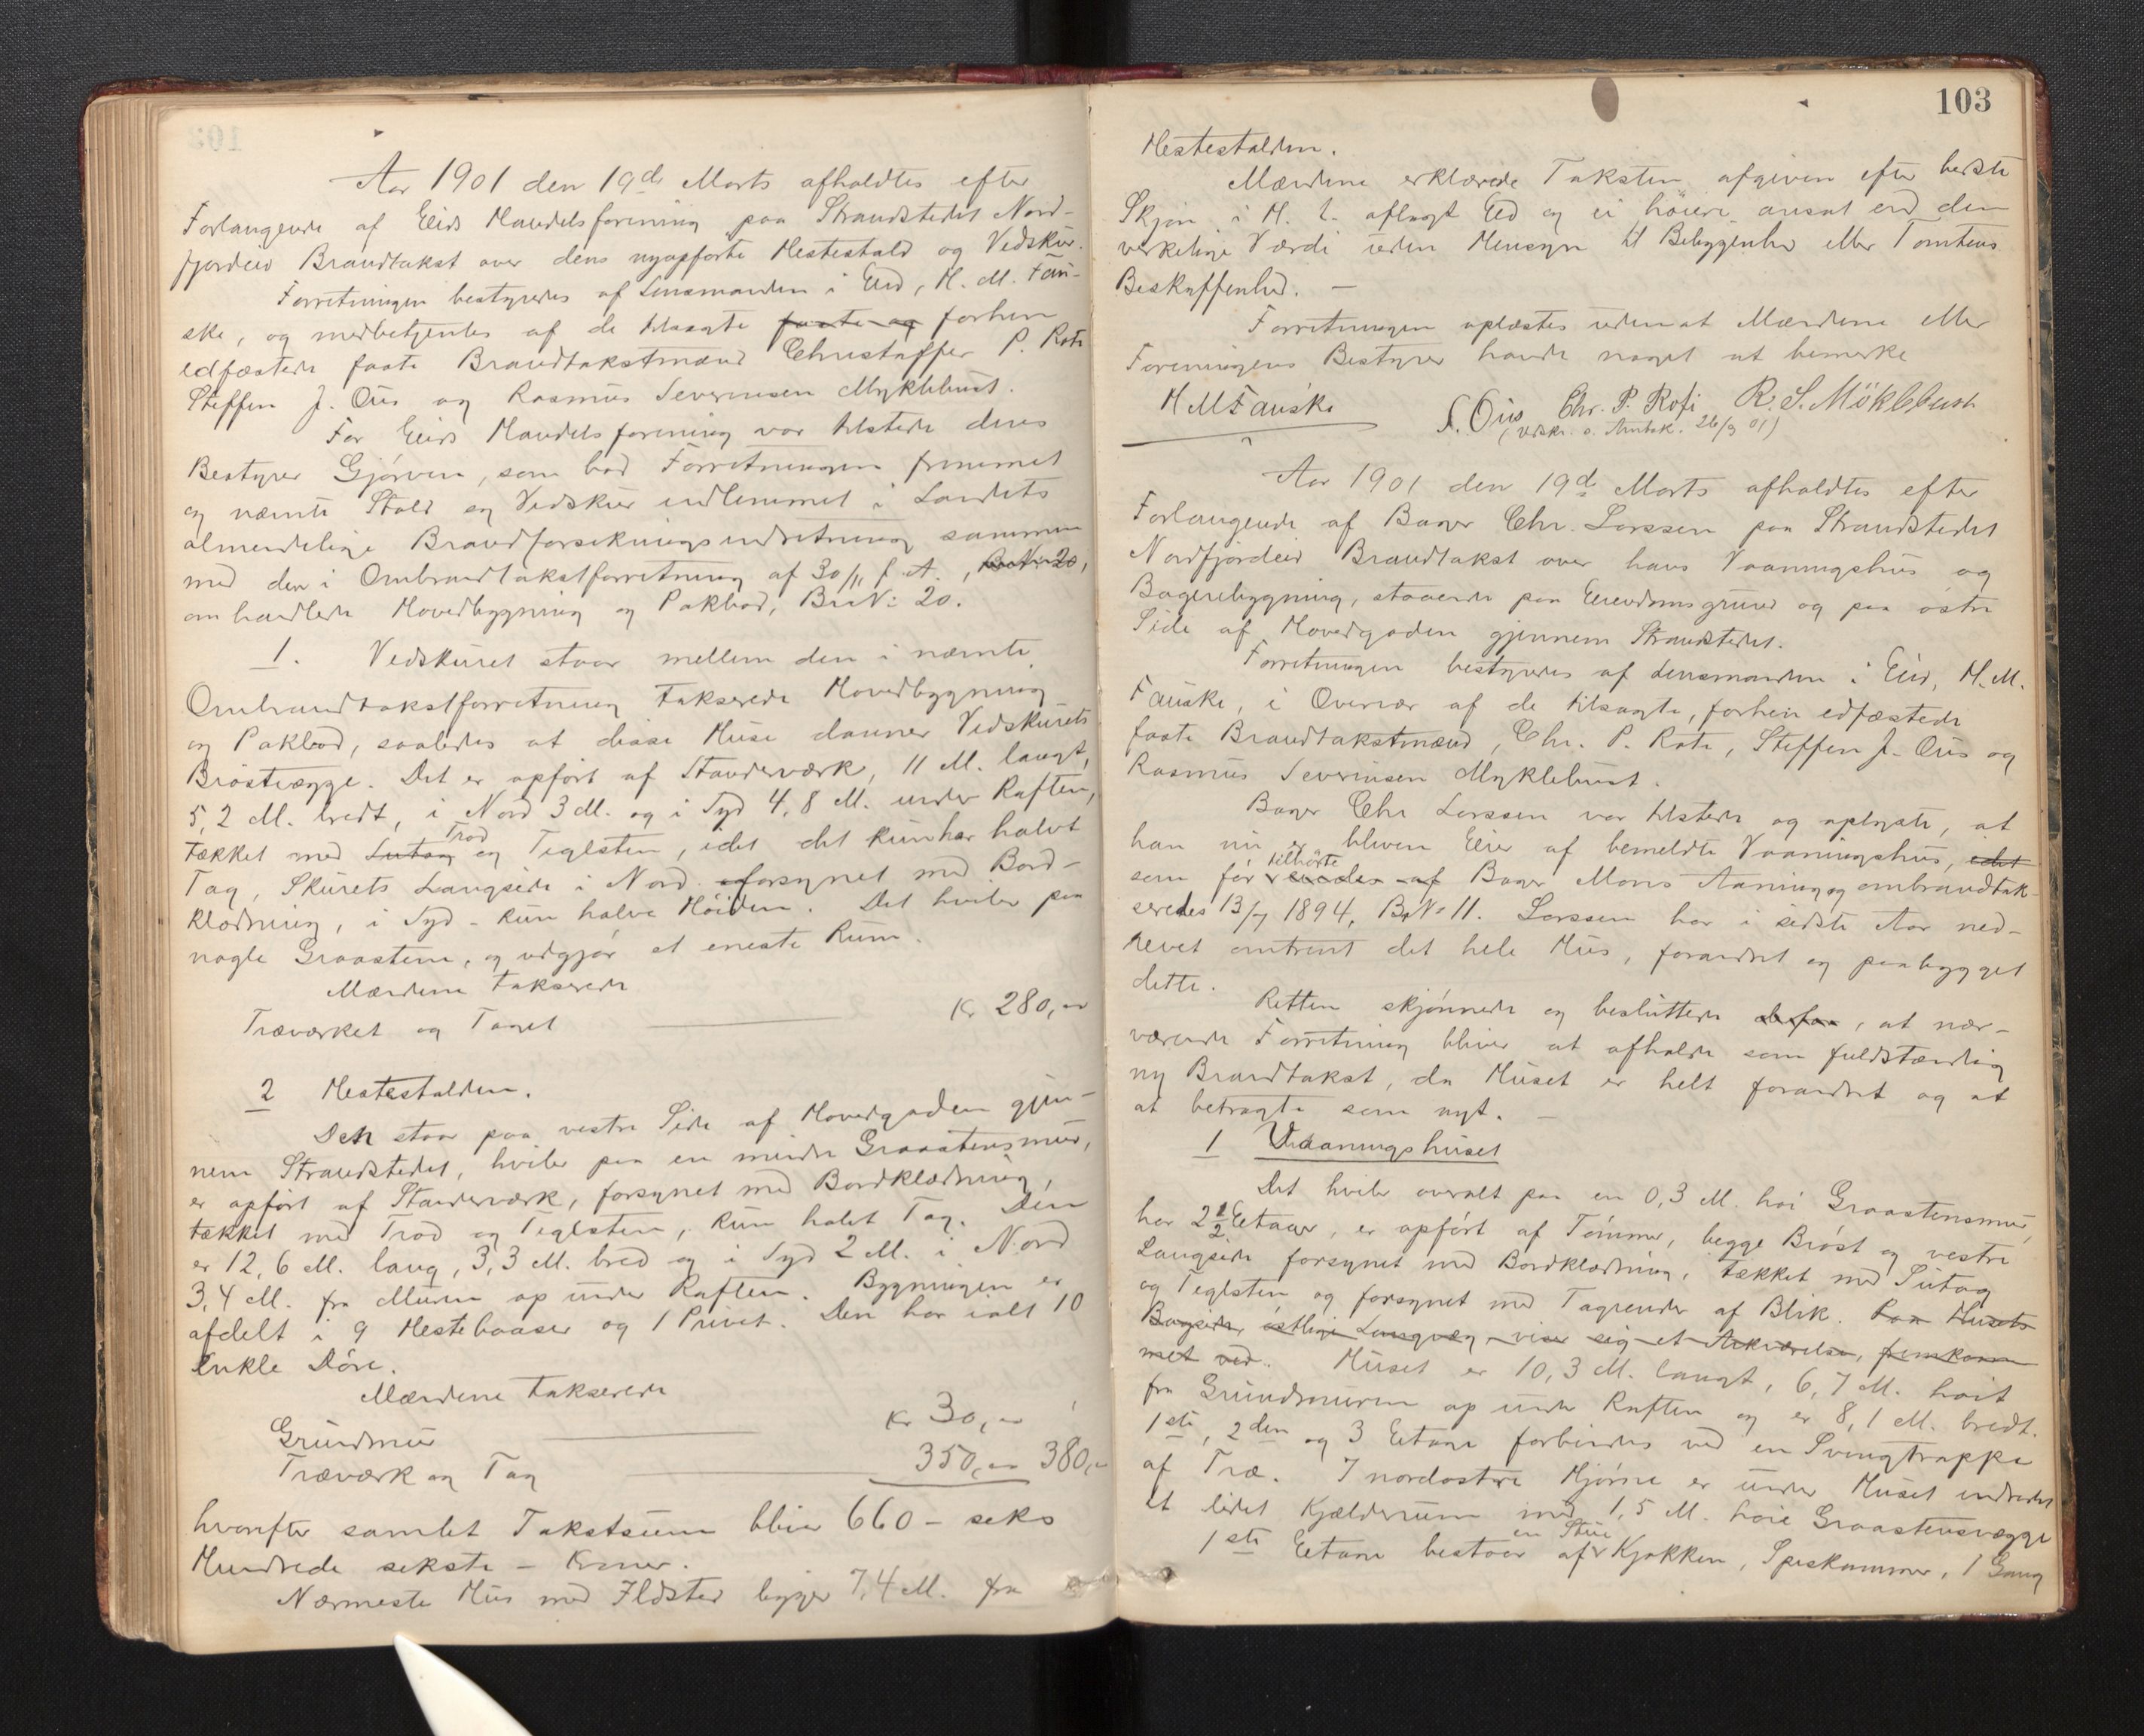 Aar 1901 den 19de Marts afholdtes efter
Forlangende af Eids Handelsforening paa Strandstedet Nord-
fjordeid Brandtakst over dens nyopførte Hestestald og Vedskur.
Forretningen bestyredes af Lensmanden i Eid, H. M. Fau-
ske, og medbetjentes af de tilsagte faste og forhen
edfæstede faste Brandtakstmænd Christoffer P. Roti
Steffen J. Ous og Rasmus Severinsen Myklebust.
For Eids Handelsforening var tilstede dens
Bestyrer Gjørven, som bad Forretningen fremmet
og nævnte Stald og Vedskur indlemmet i Landets
almindelige Brandforsikringsindretning sammen
med den i Ombrandtakstforretning af 30/11 f. A., Br.N: 20,
omhandlede Hovedbygning og Pakbod, Br.N: 20.
1. Vedskuret staar mellem den i nævnte
Ombrandtakstforretning takserede Hovedbygning
og Pakbod, saaledes at disse Huse danner Vedskurets
Brøstvægge. Det er opført af Standerværk, 11 M. langt,
5,2 M. bredt, i Nord 3 M. og i Syd 4,8 M. under Raften,
Trod
tækket med Sutag og Teglsten, idet det kun har halvt
Tag, Skurets Langside i Nord forsynet med Bord-
klædning, i Syd - kun halve Høiden. Det hviler paa
nogle Graastene, og udgjør et eneste Rum.
Mændene takserede
Træværket og Taget Kr 280,00
2 Hestestalden.
Den staar paa vestre Side af Hovedgaden gjen-
nem Strandstedet, hviler paa en mindre Graastensmur,
er opført af Standerværk, forsynet med Bordklædning,
tækket med Trod og Teglsten, kun halvt Tag. Den
er 12,6 M. lang, 3,3 M. bred og i Syd 2 M. i Nord
3,4 M. fra Muren op under Raften. Bygningen er
afdelt i 9 Hestebaaser og 1 Privet. Den har ialt 10
enkle Døre.
Mændene takserede
Grundmur Kr 30,00
Træværk og Tag 350,00 380,00
hvorefter samlet Takstsum bliver 660 - seks
Hundrede seksti - Kroner.
Nærmeste Hus med Ildsted ligger 7,4 M. fra
103
Hestestalden.
Mændene erklærede Taksten afgiven efter bedste
Skjøn i H. t. aflagt Ed og ei høiere ansat end den
verkelige Værdi uden Hensyn til Beliggenhed eller Tomtens
Beskaffenhed. -
Forretningen oplæstes uden at Mændene eller
Foreningens Bestyrer havde noget at bemerke
H M Fauske S. Ous Chr. P. Roti R. S. Möklebust
(Udskr. s. Amtsk. 26/3 01)
Aar 1901 den 19de Marts afholdtes efter
Forlangende af Bager Chr. Larssen paa Strandstedet
Nordfjordeid Brandtakst over hans Vaaningshus og
Bageribygning, staaende paa Eiendomsgrund og paa østre
Side af Hovedgaden gjennem Strandstedet.
Forretningen bestyredes af Lensmanden i Eid, H. M.
Fauske, i Overvær af de tilsagte, forhen edfæstede
faste Brandtakstmænd, Chr. P. Roti, Steffen J. Ous og
Rasmus Severinsen Myklebust.
Bager Chr Larssen var tilstede og oplyste, at
han nu er bleven Eier af bemeldte Vaaningshus, idet
tilhørte
som før eiedes af Bager Mons Aaning og ombrandtak-
seredes 13/7 1894, Br.N: 11. Larssen har i sidste Aar ned-
revet omtrent det hele Hus, forandret og paabygget
dette.
Retten skjønnede og besluttede , at nær-
værende Forretning bliver at afholde som fuldstændig
ny Brandtakst, da Huset er helt forandret og at
at betragte som nyt. -
1 Vaaningshuset
Det hviler overalt paa en 0,3 M. høi Graastensmur,
har 2 1/2 Etager, er opført af Tømmer, begge Brøst og vestre
Langside forsynet med Bordklædning, tækket med Sutag
og Teglsten og forsynet med Tagrender af Blik. Paa Husets
Bagside, østlige Langvæg viser sig et Arkværelse, fremkom
met ved. Huset er 10,3 M. langt, 6,7 M. høit
fra Grundmuren op under Raften og er 8,1 M. bredt.
1ste, 2den og 3 Etage forbindes ved en Svingtrappe
af Træ. I nordøstre Hjørne er under Huset indredet
et lidet Kjælderrum med 1,5 M. høie Graastensvægge
en Stue
1ste Etage bestaar af Kjøkken, Speskammer, 1 Gang